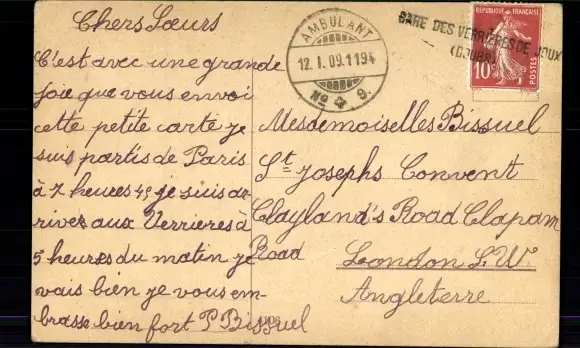 Chers Sœurs
C'est avec une grande
joie que vous envoi
cette petite carte je
suis partis de Paris
à 7 heures 45 je suis ar-
rivee aux Verrieres à
5 heures du matin je
vais bien je vous em-
brasse bien fort P Bissuel
AMBULANT
12. I. 09. 11
No 9.
GARE DES VERRIÈRES DE JOUX
(DOUBS)
RÉPUBLIQUE FRANÇAISE
10c
POSTES
Mesdemoiselles Bissuel
St Josephs Convent
Clayland's Road Clapam
Road
London S. W.
Angleterre